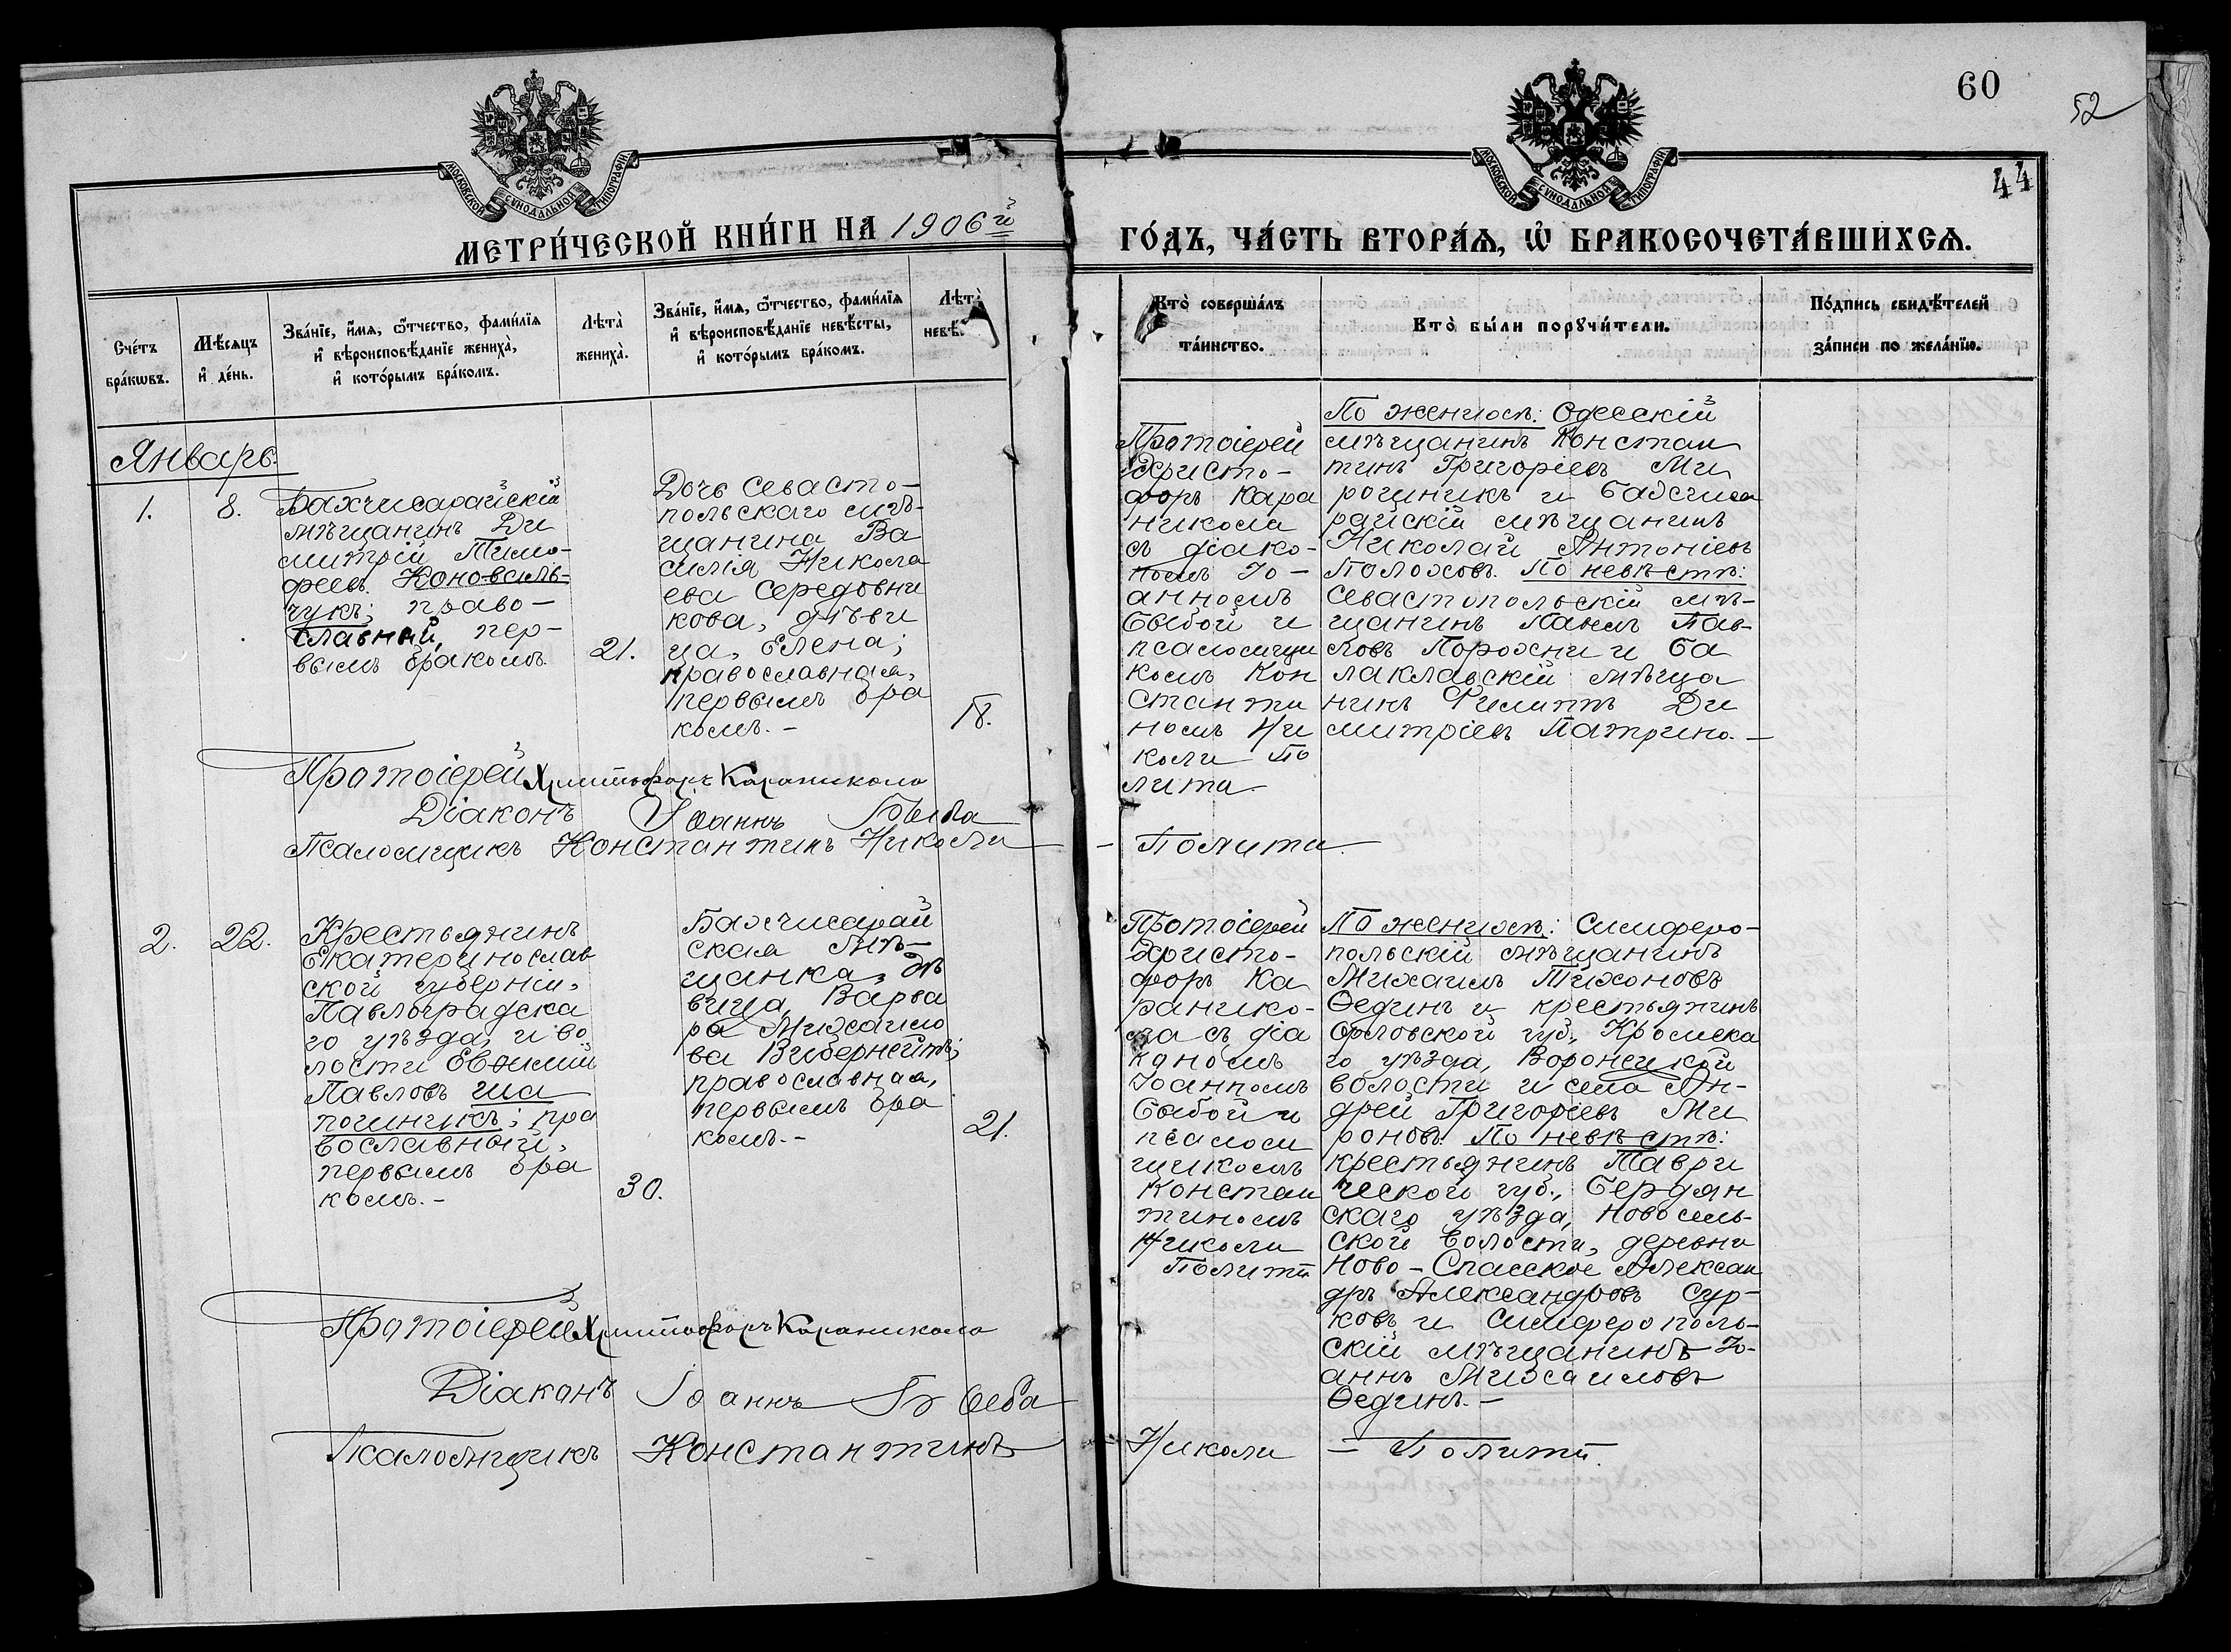 60
52
44
МОСКОВСКОЙ СѴНОДАЛЬНОЙ ТИПОГРАФІИ
МОСКОВСКОЙ СѴНОДАЛЬНОЙ ТИПОГРАФІИ
МЕТРИ́ЧЕСКОЙ КНИ́ГИ НА 1906й
ГО́ДЪ, ЧА́СТЬ ВТОРА́Я, Ѡ БРАКОСОЧЕТА́ВШИХСЯ.
Сче́тъ бра́кѡвъ.
Мѣ́сяцъ и де́нь.
Зва́нїе, и́мя, ѻ́тчество, фами́лїя и вѣроисповѣ́данїе жениха̀, и кото́рымъ бра́комъ.
Лѣта̀ жениха̀.
Зва́нїе, и́мя, ѻ́тчество, фами́лїя и вѣроисповѣ́данїе невѣ́сты, и кото́рымъ бра́комъ.
Лѣта̀ невѣ́
Кто̀ соверша́лъ та́инство.
Кто̀ бы́ли порꙋчи́тели.
По́дпись свидѣ́телей за́писи по жела́нїю.
Январь.
1.
8.
Бахчисарайскій
мѣщанинъ Ди
митрій Тимо-
феевъ Коноваль-
чукъ; право-
славный, пер-
вымъ бракомъ.
21.
Дочь Севасто-
польскаго мѣ-
щанина Ва
силія Никола
ева Середовни
кова, дѣви
ца, Елена;
православная,
первымъ бра
комъ.-
18.
Протоіерей
Христо-
форъ Кара
никола
съ діако-
номъ Іо-
анномъ
Быбой и
псаломщи
комъ Кон
станти
номъ Ни
коли По
лита-
По женихѣ: Одесскій
мѣщанинъ Констан
тинъ Григоріевъ Ми
рошникъ и Бахчиса
райскій мѣщанинъ
Николай Антоніевъ
Полоховъ. По невѣстѣ:
Севастопольскій мѣ-
щанинъ Павелъ Пав-
ловъ Порохни и Ба
лаклавскій мѣща
нинъ Филиппъ Ди
митріевъ Патрино.-
Протоіерей Христофоръ Караникола
Діаконъ Іоаннъ Быба
Псаломщикъ Константинъ Николи - Полита
2.
22.
Крестьянинъ
Екатеринослав
ской губерніи,
Павлоградска
го уѣзда, и во
лости Евѳимій
Павловъ Ша
почникъ; пра
вославный,
первымъ бра
комъ.-
30.
Бахчисарай
ская мѣ-
щанка, дѣ
вица, Варва
ра Михаило
ва
православная,
первымъ бра
комъ.-
21.
Протоіерей
Христо-
форъ Ка
ранико-
ла съ діа
кономъ
Іоанномъ
Быбой и
псалом
щикомъ
Констан
тиномъ
Николи
Полити
По женихѣ: Симферо-
польскій мѣщанинъ
Михаилъ Тихоновъ
Ѳединъ и крестьянинъ
Орловской губ., Кромска
го уѣзда,
волости и села Ан-
дрей Григоріевъ Ми
роновъ. По невѣстѣ:
крестьянинъ Таври
ческой губ., Бердян
скаго уѣзда, Новосель-
ской волости, деревни
Ново-Спасское Алексан
дръ Александровъ Сур-
ковъ и Симферополь-
скій мѣщанинъ Іо-
аннъ Михаиловъ
Ѳединъ.-
Протоіерей Христофоръ Караникола
Діаконъ Іоаннъ Быба
Псаломщикъ Константинъ Николи - Полити.